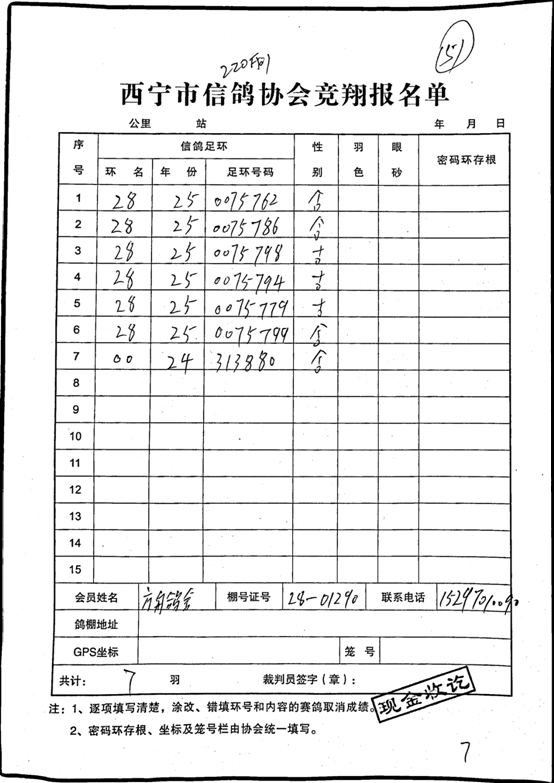 151
西宁市信鸽协会竞翔报名单
公里 站 年 月 日
序号 信鸽足环 性别 羽色 眼砂 密码环存根
环 名 年 份 足环号码
1 28 25 0075762 合
2 28 25 0075786 合
3 28 25 0075798 吉
4 28 25 0075794 吉
5 28 25 0075779 吉
6 28 25 0075799 合
7 00 24 313880 合
8
9
10
11
12
13
14
15
会员姓名 棚号证号 28-01290 联系电话 15297010090
鸽棚地址
GPS坐标 笼 号
共计: 7 羽 裁判员签字(章):
注:1、逐项填写清楚,涂改、错填环号和内容的赛鸽取消成绩。
现金收讫
2、密码环存根、坐标及笼号栏由协会统一填写。
7